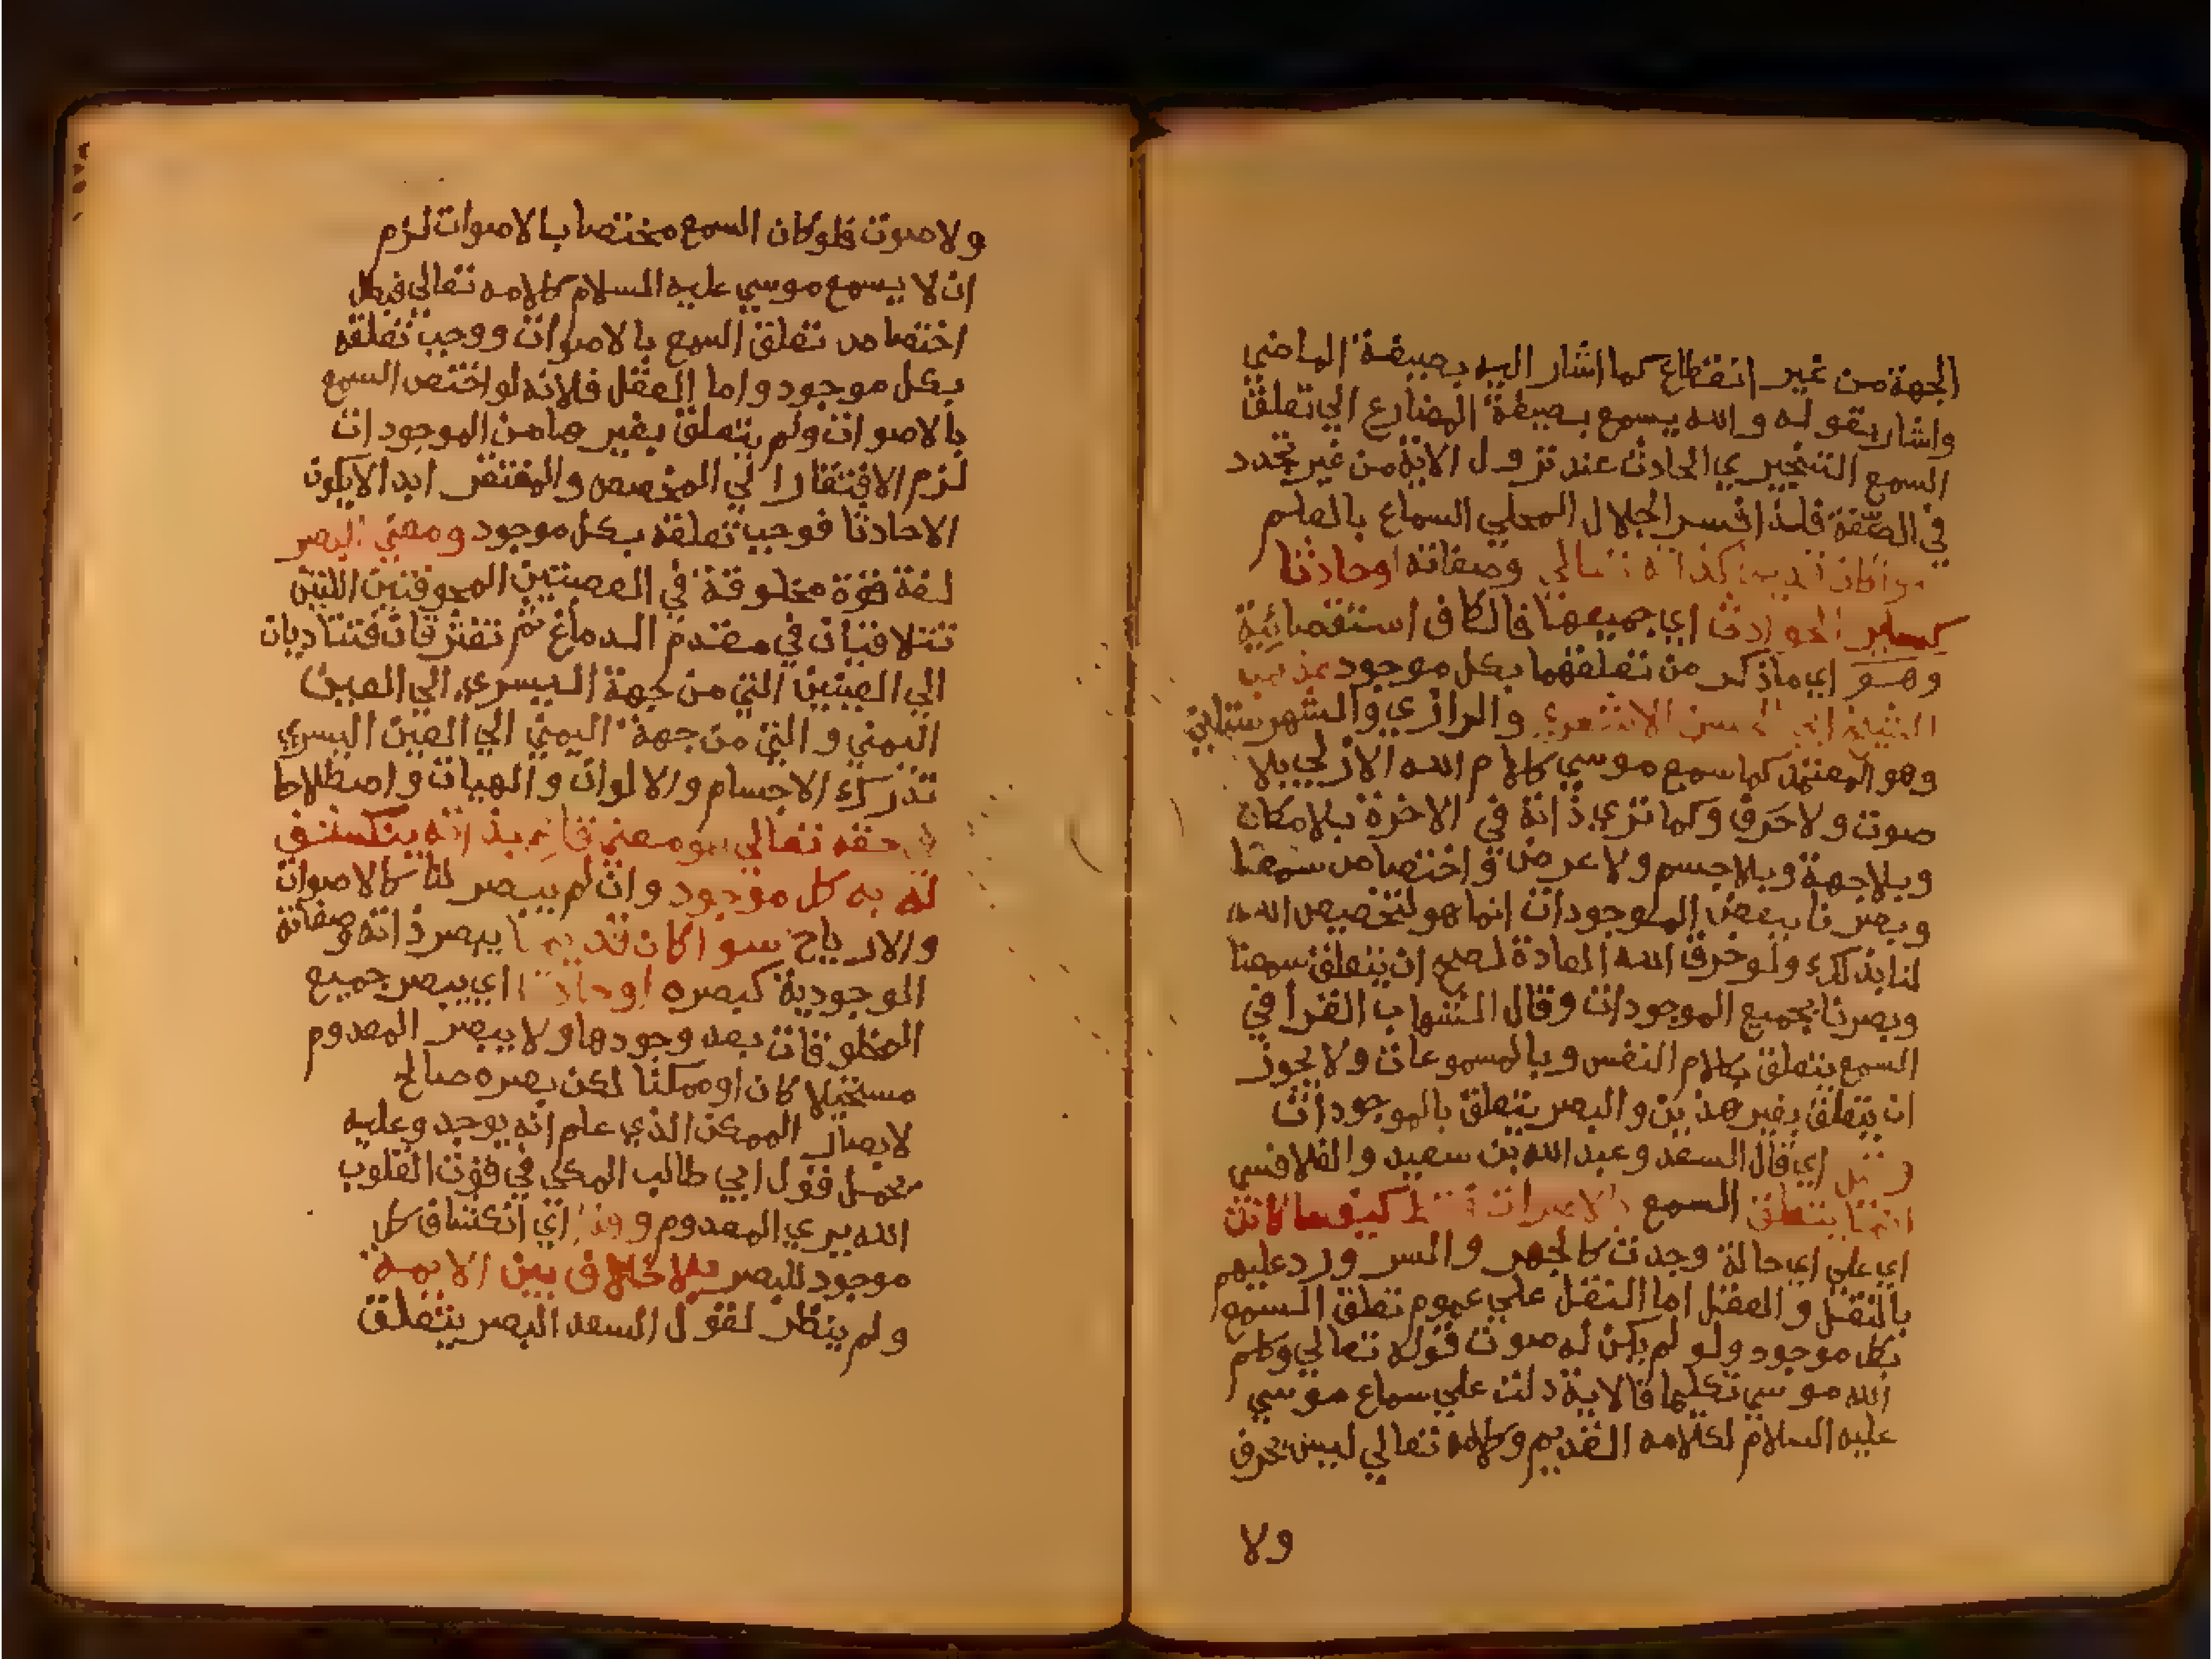 الجهة من غير انقطاع كما اشار اليه بصيغة الماضي
واشار بقوله والله يسمع بصيغة المضارع الي تعلق
السمع التنجيزي الحادث عند نزول الاية من غير تجدد
في الصفة فلذا فسر الجلال المحلي السماع بالعلم
سوا كان قديما كذاته تعالي وصفاته اوحادثا
كساير الحوادث اي جميعها فالكاف استقصائية
وهو اي ماذكر من تعلقهما بكل موجود مذهب
الشيخ ابي الحسن الاشعري والرازي والشهرستاني
وهو المعتمد كما سمع موسي كلام الله الازلي بلا
صوت ولا حرف وكما نري ذاته في الاخرة بلامكان
وبلاجهة وبلاجسم ولا عرض واختصاص سمعنا
وبصرنا ببعض الموجودات انما هو لتخصيص الله
لنا بذلك ولو خرق الله العادة لصح ان يتعلق سمعنا
وبصرنا بجميع الموجودات وقال الشهاب القرافي
السمع يتعلق بكلام النفس وبالمسموعات ولا يجوز
ان يتعلق بغير هذين والبصر يتعلق بالموجودات
وقيل اي قال السعد وعبد الله بن سعيد والقلانسي
انما يتعلق السمع بالاصوات فقط كيفما كانت
اي علي اي حالة وجدت كالجهر والسر ورد عليهم
بالنقل والعقل اما النقل علي عموم تعلق السمع
بكل موجود ولو لم يكن له صوت قوله تعالي وكلم
الله موسي تكليما فالاية دلت علي سماع موسي
عليه السلام لكلامه القديم وكلامه تعالي ليس بحرف
ولا
ولاصوت فلوكان السمع مختصا بالاصوات لزم
ان لا يسمع موسي عليه السلام كلامه تعالي فبطل
اختصاص تعلق السمع بالاصوات ووجب تعلقه
بكل موجود واما العقل فلانه لواختص السمع
بالاصوات ولم يتعلق بغيرها من الموجودات
لزم الافتقار الي المخصص والمفتقر ابدا لايكون
الاحادثا فوجب تعلقه بكل موجود ومعني البصر
لغة قوة مخلوقة في العصبتين المجوفتين اللتين
تتلاقيان في مقدم الدماغ ثم تفترقان فتتاديان
الي العينين التي من جهة اليسري الي العين
اليمني والتي من جهة اليمني الي العين اليسري
تدرك الاجسام والالوان والهيات واصطلاحا
في حقه تعالي هو معني قائم بذاته ينكشف
له به كل موجود وان لم يبصر لنا كالاصوات
والارياح سوا كان قديما يبصر ذاته وصفاته
الوجودية كبصره اوحادثا اي يبصر جميع
المخلوقات بعد وجودها ولا يبصر المعدوم
مستحيلا كان اوممكنا لكن بصره صالح
لابصار الممكن الذي علم انه يوجد وعليه
يحمل قول ابي طالب المكي في قوت القلوب
الله يري المعدوم وهذا اي انكشاف كل
موجود للبصر بلا خلاف بين الايمة
ولم ينظر لقول السعد البصر يتعلق